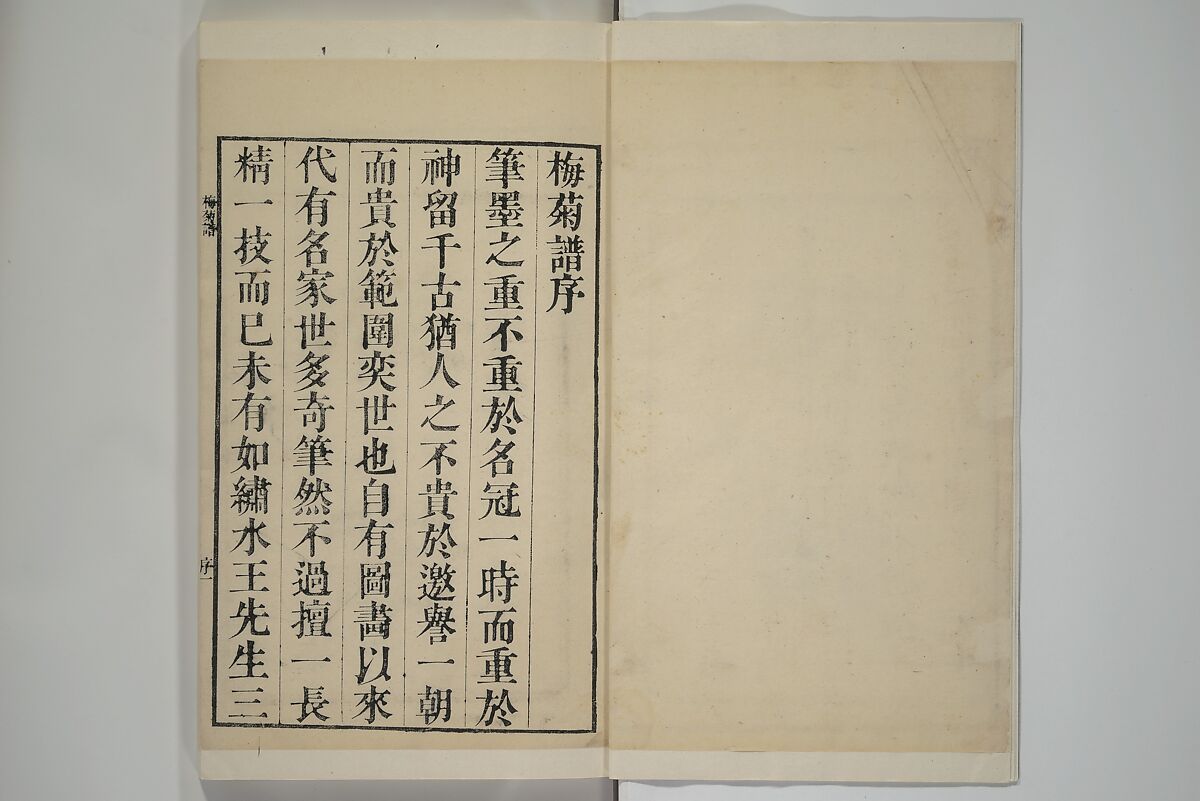 梅菊譜序
筆墨之重不重於名冠一時而重於
神留千古猶人之不貴於邀譽一朝
而貴於範圍奕世也自有圖畵以來
代有名家世多奇筆然不過擅一長
精一技而已未有如繡水王先生三
梅菊譜
序一